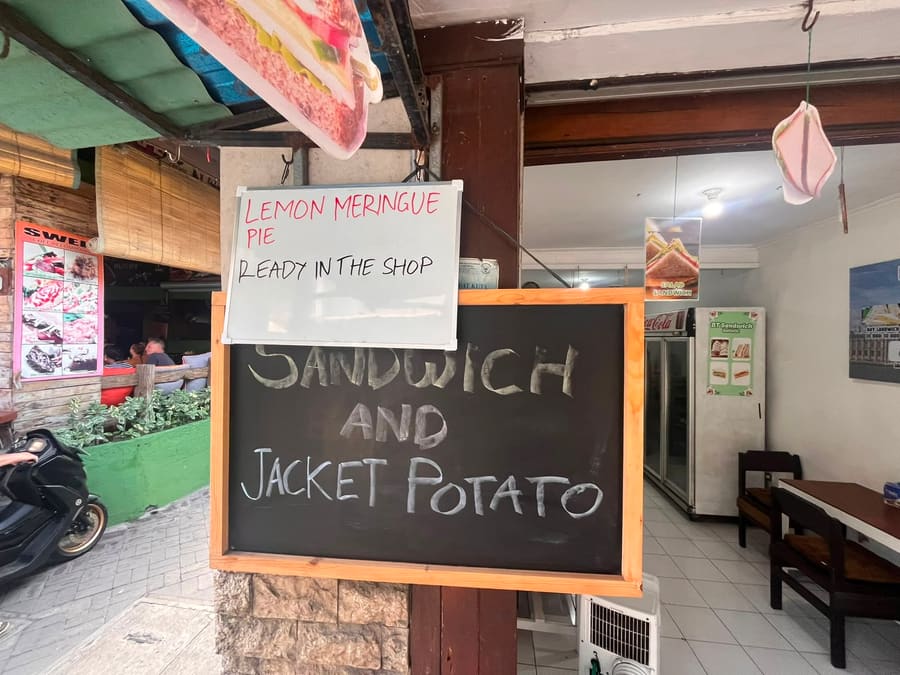 LEMON MERINGUE
PIE
READY IN THE SHOP
SANDWICH
AND
JACKET POTATO
SWE
Coca-Cola
BT Sandwich
SANDWICH